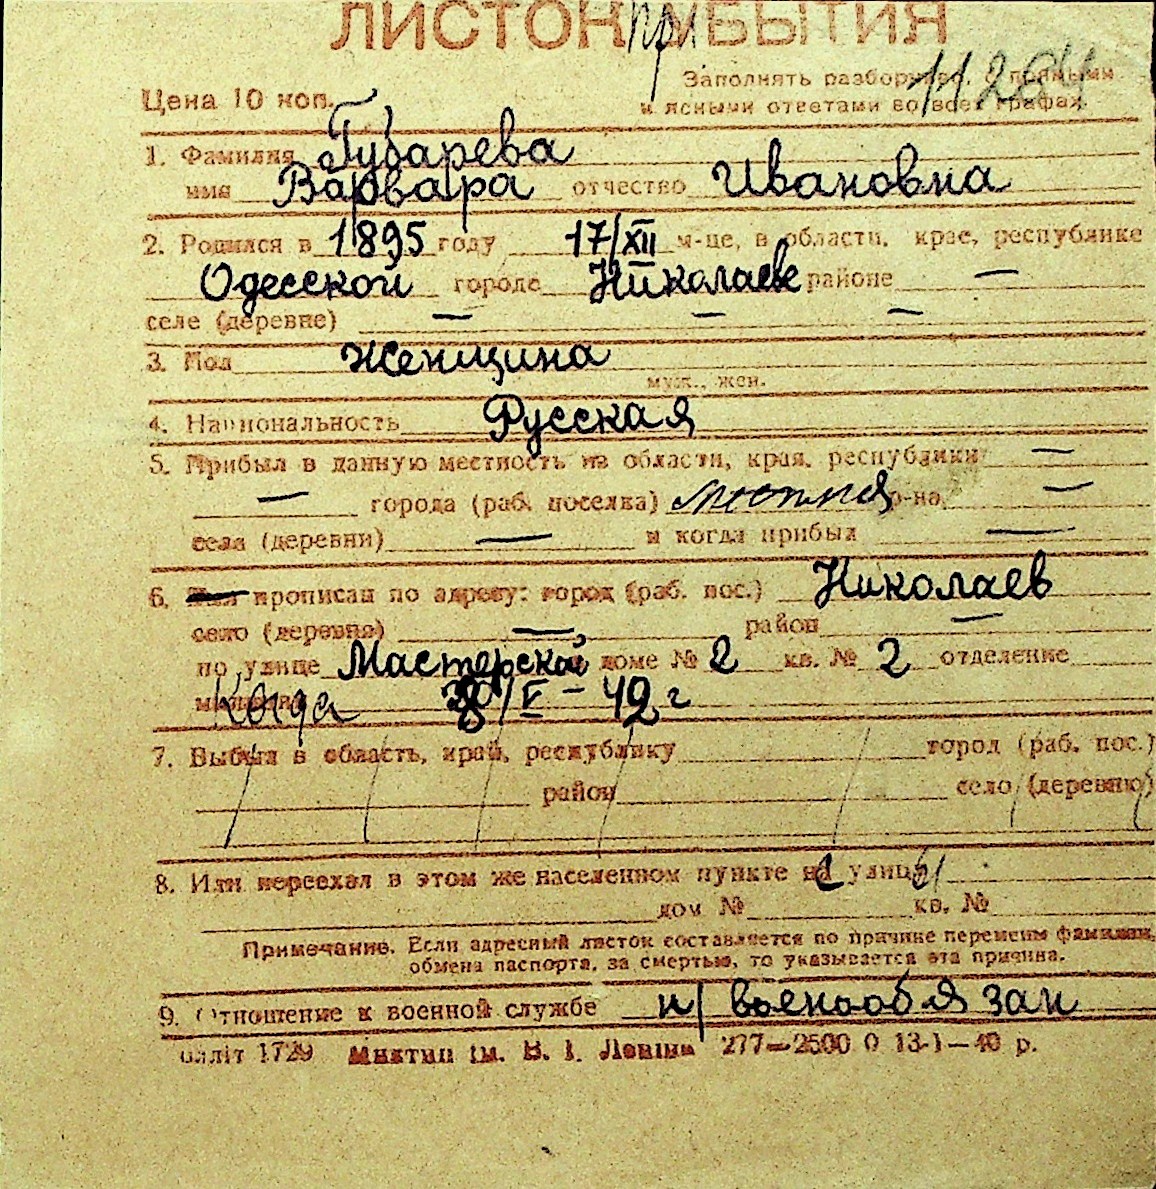 ЛИСТОК при УБЫТИЯ
11264
Заполнять разборчиво, с прямыми
и ясными ответами во всех графах.
Цена 10 коп.
1. Фамилия Губарева
имя Варвара отчество Ивановна
2. Родился в 1895 году 17/XII м-це, в области, крае, республике
Одесской городе Николаеве районе —
селе (деревне) — — —
3. Пол женщина
муж., жен.
4. Национальность Русская
5. Прибыл в данную местность из области, края, республики —
— города (раб. поселка) местная р-на —
села (деревни) — и когда прибыл —
6. прописан по адресу: город (раб. пос.) Николаев
село (деревня) — район —
по улице Мастерской доме № 2 кв. № 2 отделение
Когда /V – 42 г
7. Выбыл в область, край, республику город (раб. пос.)
район село (деревню)
8. Или переехал в этом же населенном пункте с улицы
дом № кв. №
Примечание. Если адресный листок составляется по причине перемены фамилии,
обмена паспорта, за смертью, то указывается эта причина.
9. Отношение к военной службе н/военообязан
1729 ім. В. І. Леніна 277—2500 0 13-1—40 р.